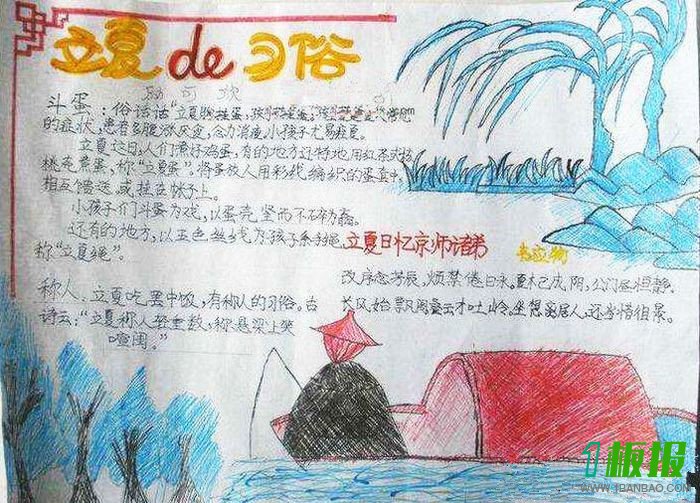 立夏de习俗
斗蛋：俗话话“立夏胸挂蛋，孩子
的症状，患者多腹涨厌食，乏力消瘦，小孩子尤易疰夏。
立夏这日，人们煮好鸡蛋，有的地方还特地用红茶或
桃壳煮蛋，称“立夏蛋”。将蛋放入用彩线编织的蛋套中，
相互馈送或挂在帐子上。
小孩子们斗蛋为戏，以蛋壳坚而不碎
还有的地方，以五色丝线为孩子系
称“立夏绳”。
立夏日忆京师诸弟
韦应物
改序念芳辰，烦襟倦日永。夏木已成阴，公门昼恒静。
长风始飘阁，叠云才吐岭。坐想离居人，还当惜徂景。
称人：立夏吃罢中饭，有称人的习俗。古
诗云：“立夏称人轻重数，称悬梁上笑
喧闺。”
1板报
WWW.1BANBAO.COM